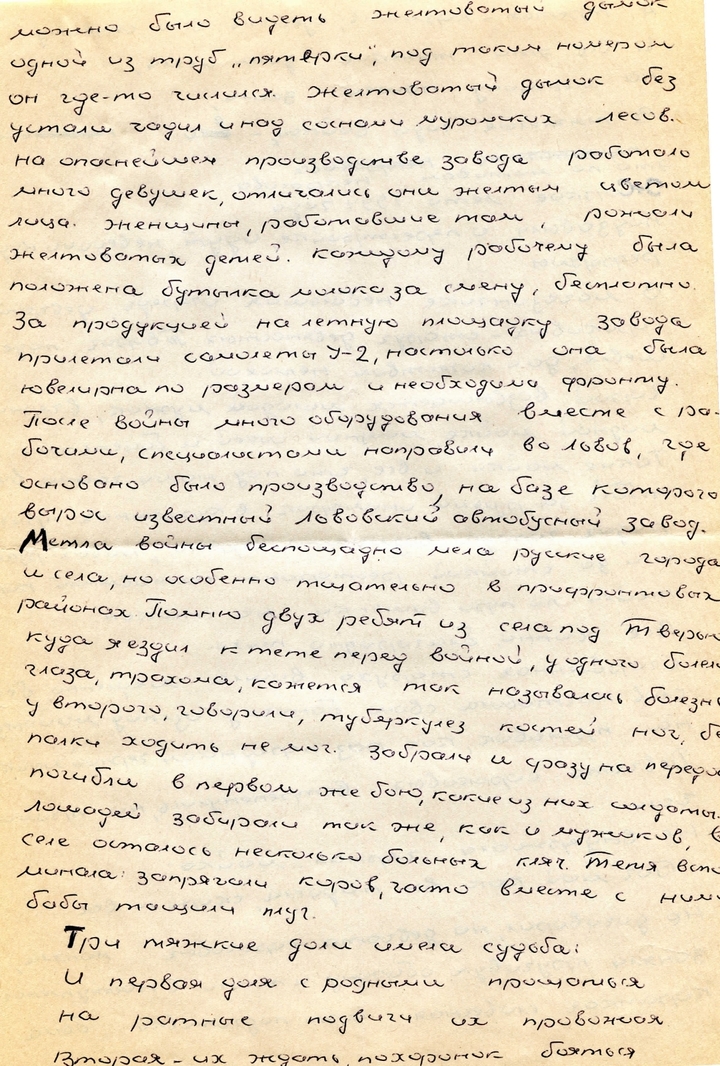 можно было видеть желтоватый дымок
одной из труб „пятёрки", под таким номером
он где-то числился. Желтоватый дымок без
устали чадил и над соснами муромских лесов.
На опаснейшем производстве завода работало
много девушек, отличались они желтым цветом
лица. Женщины, работавшие там, рожали
желтоватых детей. Каждому рабочему была
положена бутылка молока за смену, бесплатно.
За продукцией на летную площадку завода
прилетали самолеты У-2, настолько она была
ювелирна по размерам и необходима фронту.
После войны много оборудования вместе с ра-
бочими, специалистами направили во Львов, где
основано было производство, на базе которого
вырос известный Львовский автобусный завод.
Метла войны беспощадно мела русские города
и села, но особенно тщательно в прифронтовых
районах. Помню двух ребят из села под Тверью
куда я ездил к тете перед войной, у одного болели
глаза, трахома, кажется так называлась болезнь
у второго, говорили, туберкулез костей ног, бе
палки ходить не мог. Забрали и сразу на передо
погибли в первом же бою, какие из них солдаты.
Лошадей забирали так же, как и мужиков, в
селе осталось несколько больных кляч. Тетя вспо
минала: запрягали коров, часто вместе с ними
бабы тащили плуг.
Три тяжкие доли имела судьба:
И первая доля с родными прощаться
на ратные подвиги их провожая
Вторая - их ждать, похоронок бояться